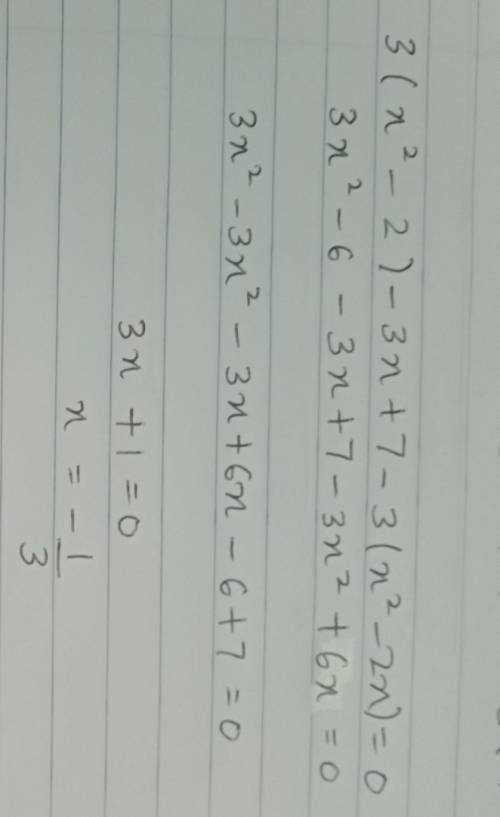 3(x² - 2) - 3x + 7 - 3(x² - 2x) = 0
3x² - 6 - 3x + 7 - 3x² + 6x = 0
3x² - 3x² - 3x + 6x - 6 + 7 = 0
3x + 1 = 0
x = -1/3